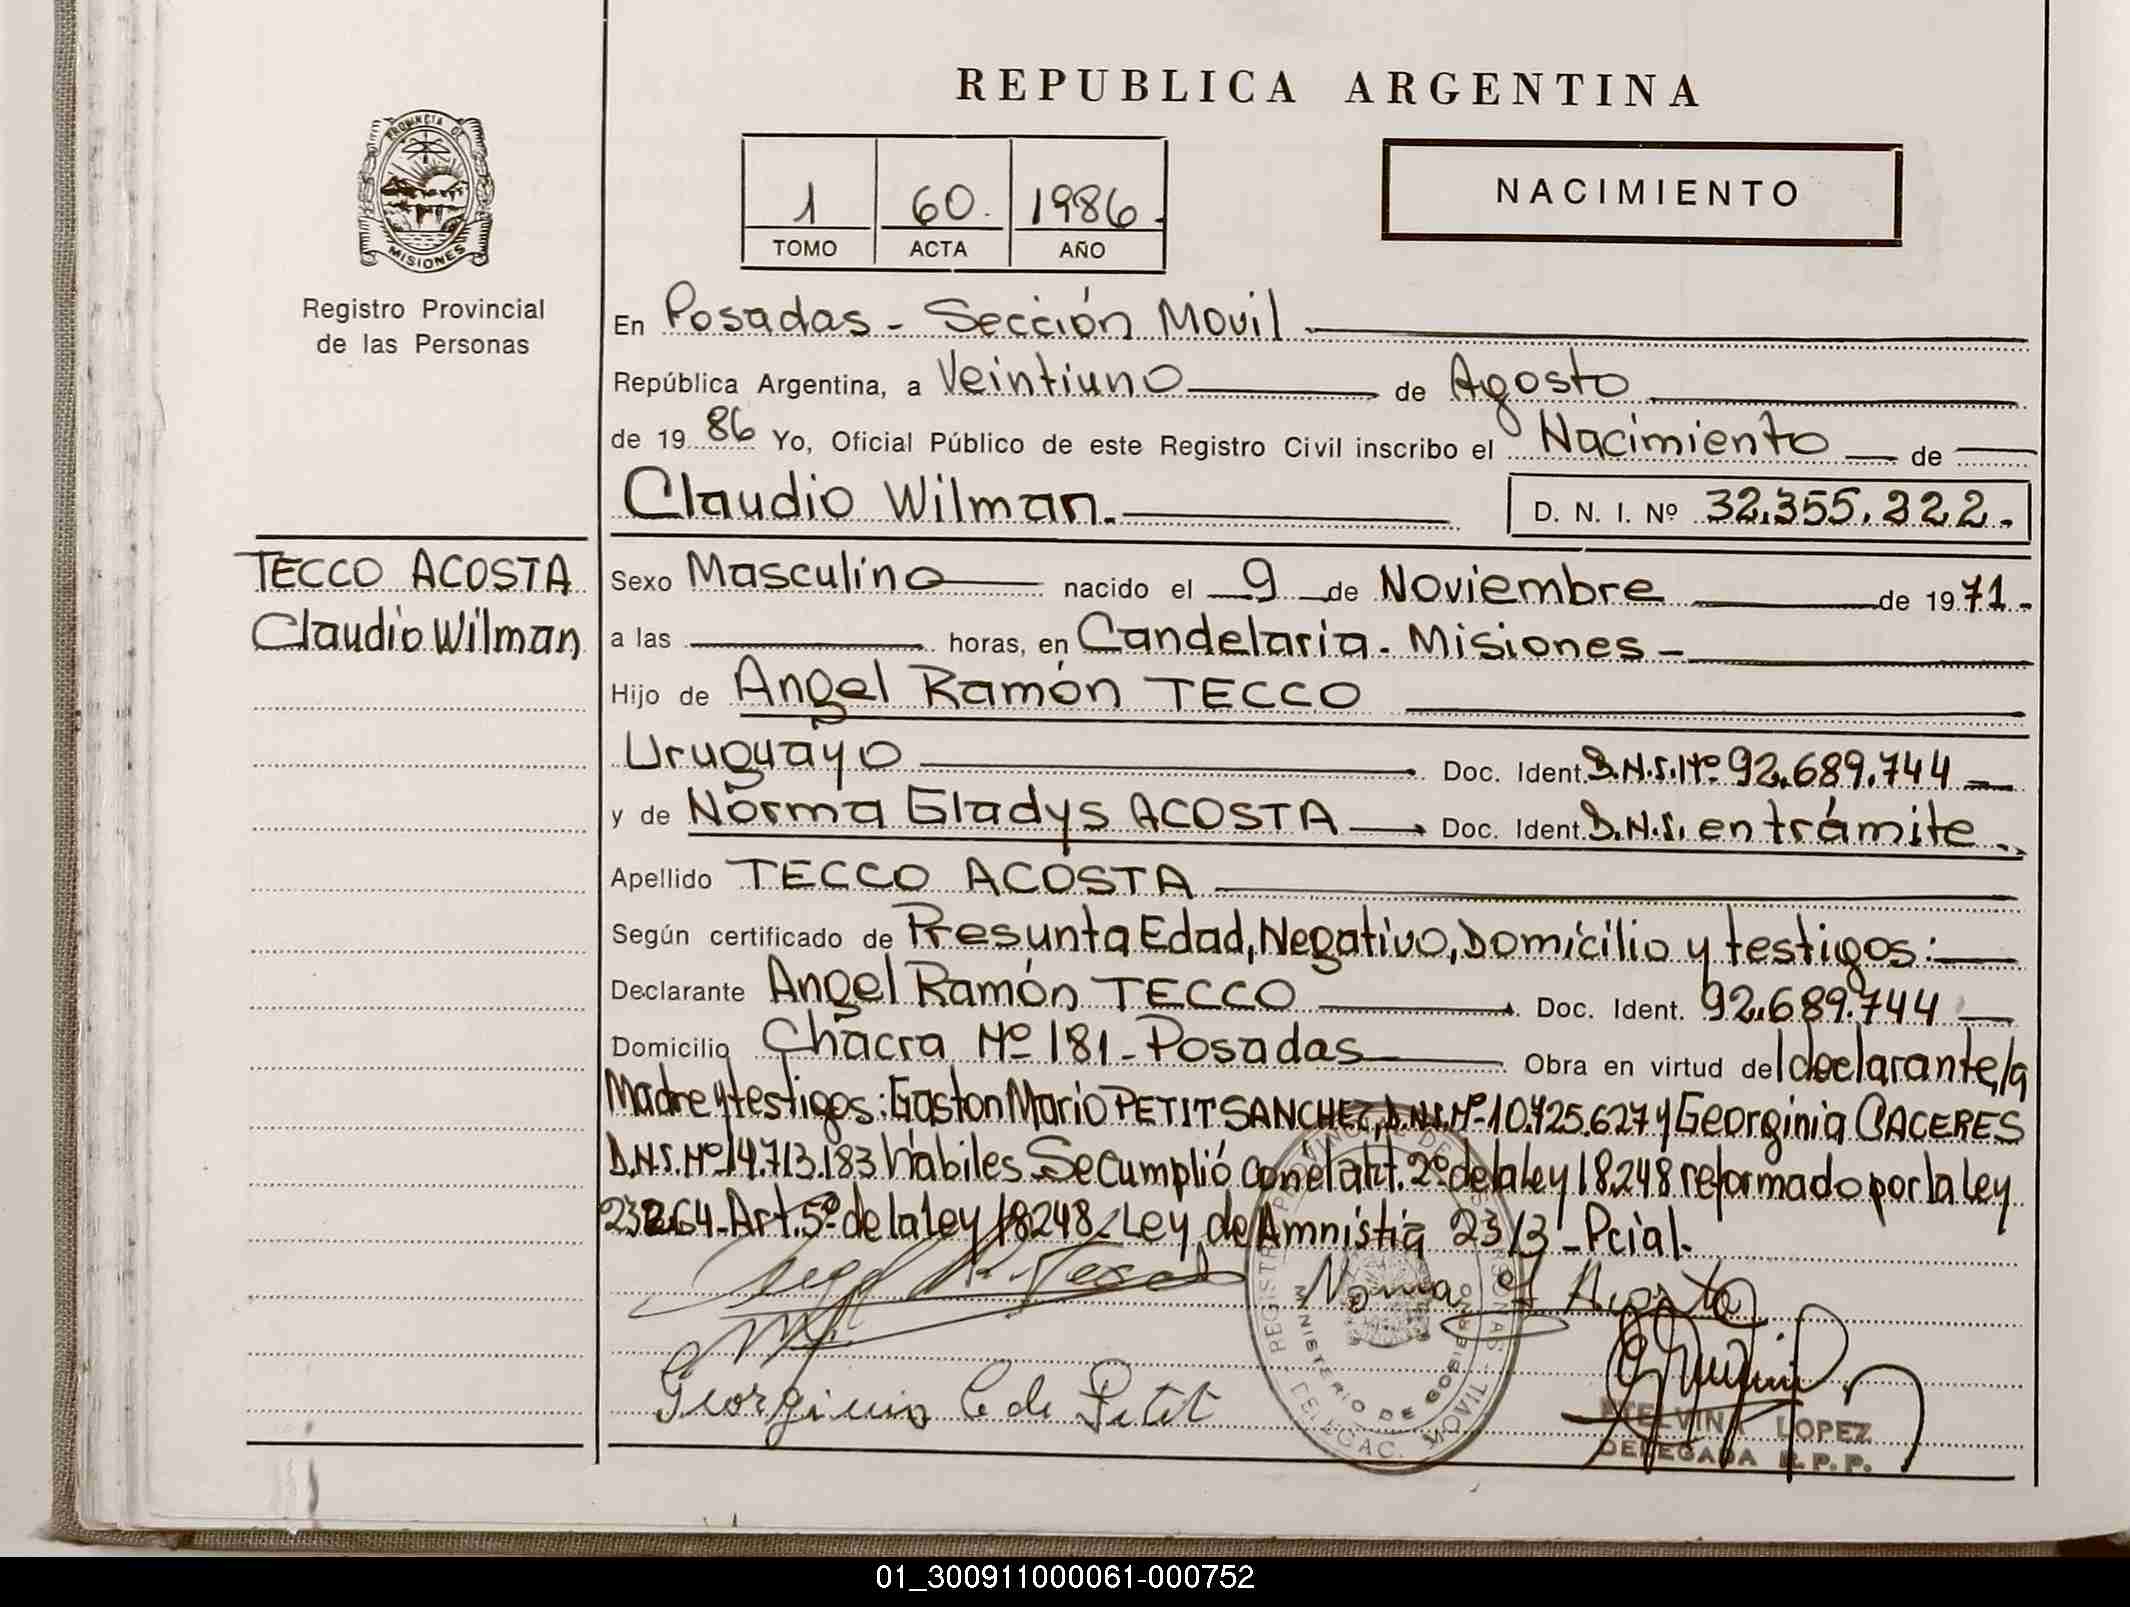 REPUBLICA ARGENTINA
PROVINCIA DE
MISIONES
Registro Provincial
de las Personas
1 60. 1986.
TOMO ACTA AÑO
NACIMIENTO
En Posadas - Sección Movil
República Argentina, a Veintiuno de Agosto
de 19 86 Yo, Oficial Público de este Registro Civil inscribo el Nacimiento de
Claudio Wilman. D. N. I. Nº 32.355.222.
TECCO ACOSTA
Claudio Wilman
Sexo Masculino nacido el 9 de Noviembre de 19 71.
a las horas, en Candelaria. Misiones
Hijo de Angel Ramón TECCO
Uruguayo Doc. Ident. D.N.I. Nº 92.689.744
y de Norma Gladys ACOSTA Doc. Ident. D.N.I. en trámite
Apellido TECCO ACOSTA
Según certificado de Presunta Edad, Negativo, Domicilio y testigos:
Declarante Angel Ramón TECCO Doc. Ident. 92.689.744
Domicilio Chacra Nº 181 - Posadas Obra en virtud del declarante, la
Madre y testigos: Gaston Mario PETIT SANCHEZ, D.N.I. Nº 10.725.627 y Georginia CACERES
D.N.I. Nº 14.713.183 hábiles. Se Cumplió con el art. 2º de la ley 18.248 reformado por la ley
23264 - Art. 5º de la ley 18248 - Ley de Amnistia 2313 - Pcial.
Norma G Acosta
Georginia C de Petit
MINISTERIO DE GOBIERNO
DELEGAC. MOVIL
ETELVINA LOPEZ
DELEGADA R.P.P.
01_300911000061-000752